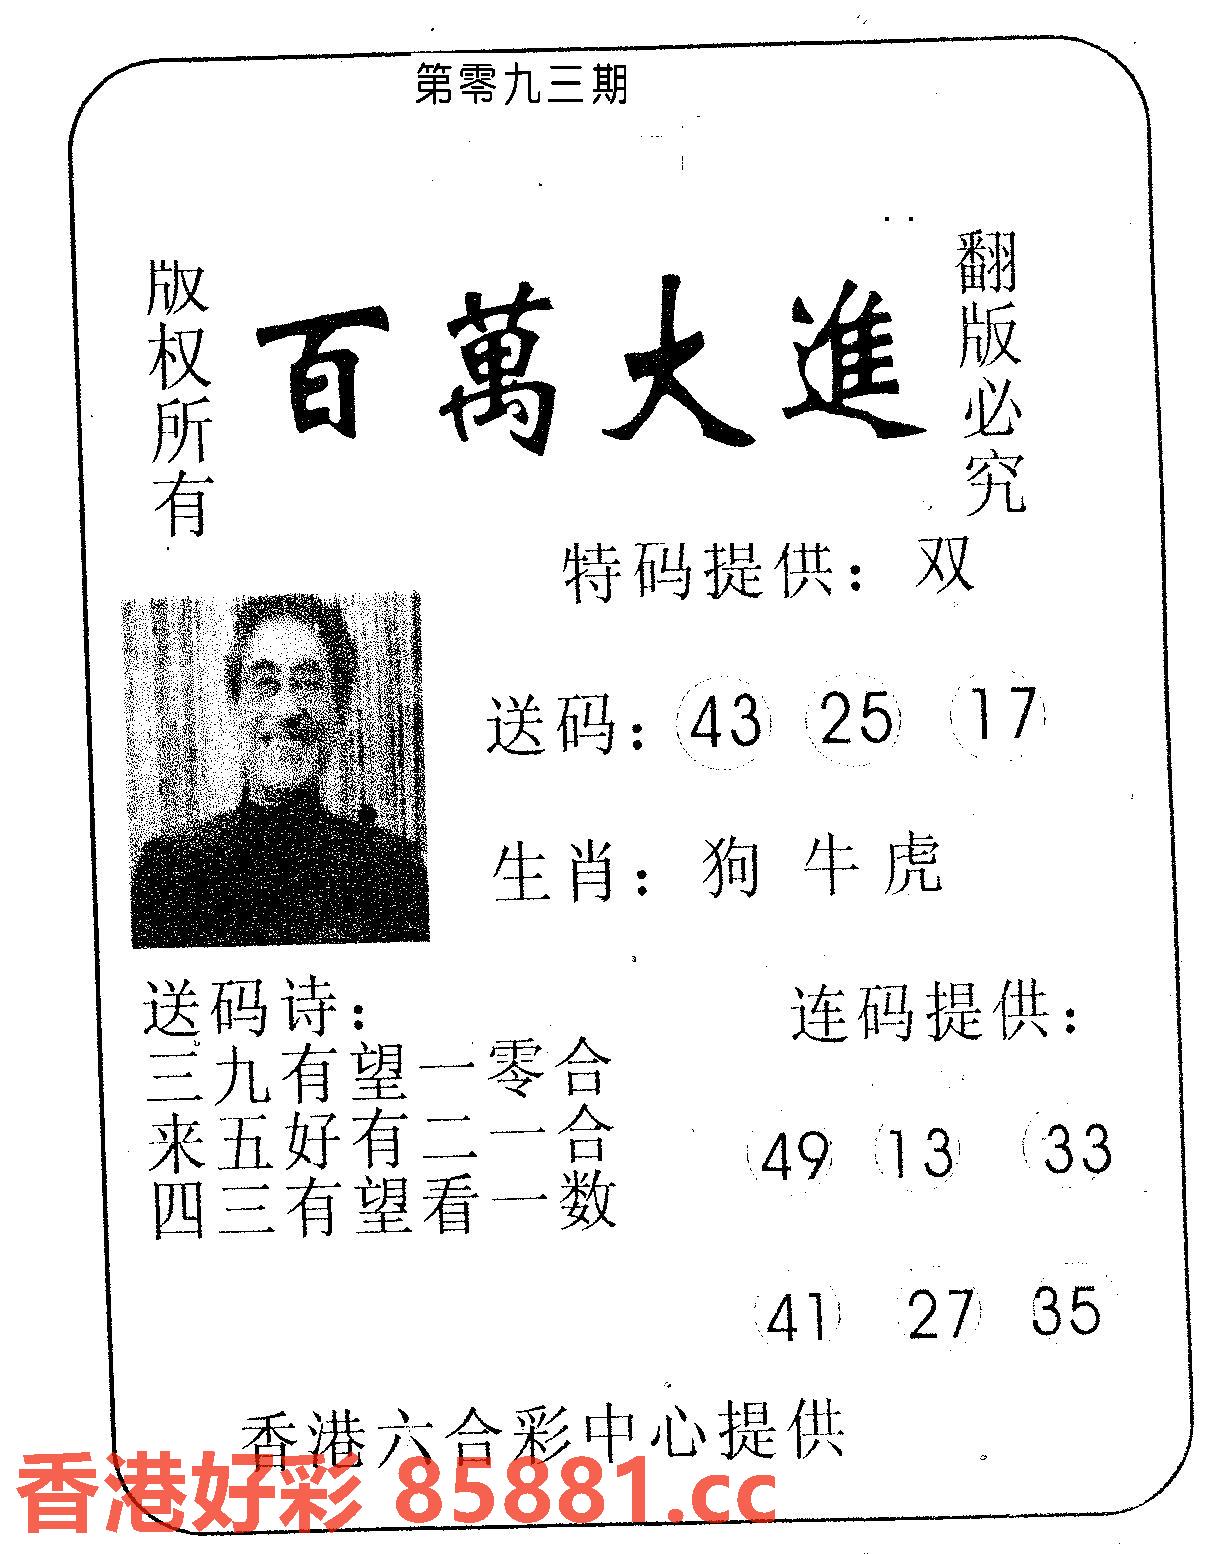 第零九三期
版权所有
百萬大進
翻版必究
特码提供：双
送码：43 25 17
生肖：狗 牛 虎
送码诗：
三九有望一零合
来五好有二一合
四三有望看一数
连码提供：
49 13 33
41 27 35
香港六合彩中心提供
香港好彩 85881.cc